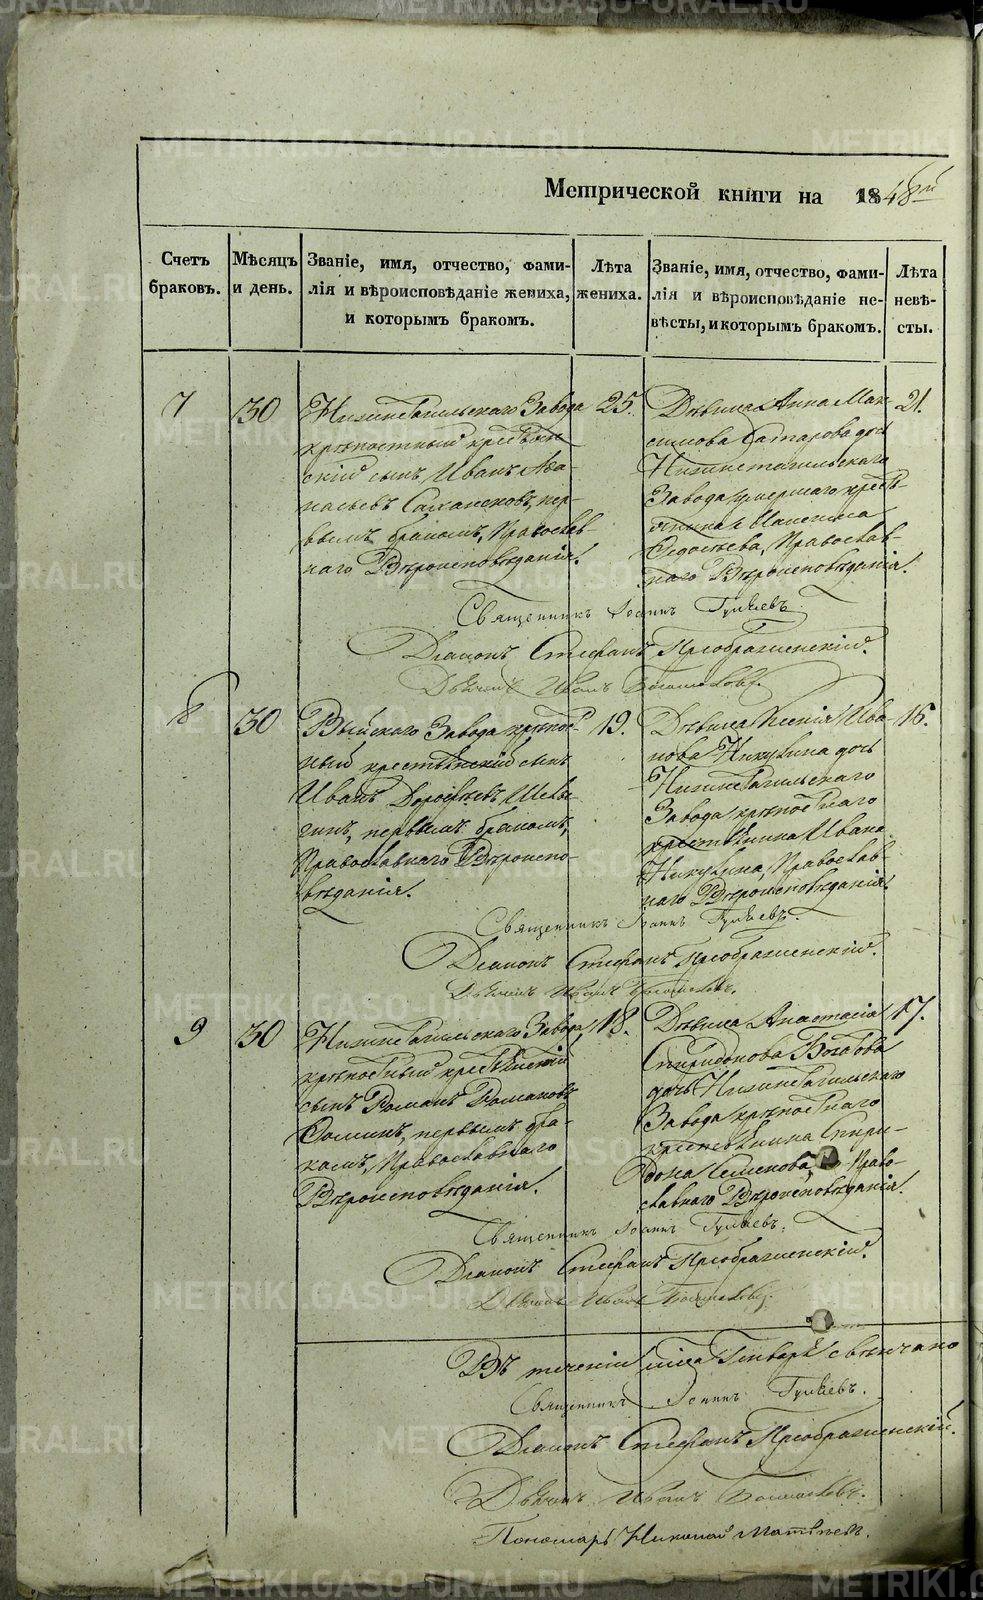 Метрической книги на 1848й
Счетъ браковъ.
Мѣсяцъ и день.
Званіе, имя, отчество, фами-
лія и вѣроисповѣданіе жениха,
и которымъ бракомъ.
Лѣта
жениха.
Званіе, имя, отчество, фами-
лія и вѣроисповѣданіе не-
вѣсты, и которымъ бракомъ.
Лѣта
невѣ-
сты.
7
30
Нижнетагильскаго Завода
крѣпостный крестьян
скій сынъ Иванъ Афа-
насьевъ пер-
вымъ бракомъ, Православ-
наго Вѣроисповѣданія.
25.
Дѣвица Анна Мак-
симова дочь
Нижнетагильскаго
Завода умершаго кресть-
янина
Православ-
наго Вѣроисповѣданія.
21.
Священникъ Іоаннъ
Діаконъ Стефанъ Преображенскій.
Дьячекъ Иванъ
8
30
Выйскаго Завода крѣпост-
ный крестьянскій сынъ
Иванъ Дорофѣевъ Шевы-
гинъ, первымъ бракомъ,
Православнаго Вѣроиспо-
вѣданія.
19.
Дѣвица Ксенія Ива-
нова Никулина дочь
Нижнетагильскаго
Завода крѣпостнаго
крестьянина Ивана
Никулина, Православ-
наго Вѣроисповѣданія.
16.
Священникъ Іоаннъ
Діаконъ Стефанъ Преображенскій.
Дьячекъ Иванъ
9
30
Нижнетагильскаго Завода
крѣпостный крестьянскій
сынъ Романъ Романовъ
Ѳоминъ, первымъ бра-
комъ, Православнаго
Вѣроисповѣданія.
18.
Дѣвица Анастасія
Спиридонова
дочь Нижнетагильскаго
Завода крѣпостнаго
крестьянина Спири-
дона Семенова, Право-
славнаго Вѣроисповѣданія.
17.
Священникъ Іоаннъ
Діаконъ Стефанъ Преображенскій.
Дьячекъ Иванъ
Въ теченіи мѣсяца Генваря свѣнчано
Священникъ Іоаннъ
Діаконъ Стефанъ Преображенскій.
Дьячекъ Иванъ
Пономарь Николай
METRIKI.GASO-URAL.RU